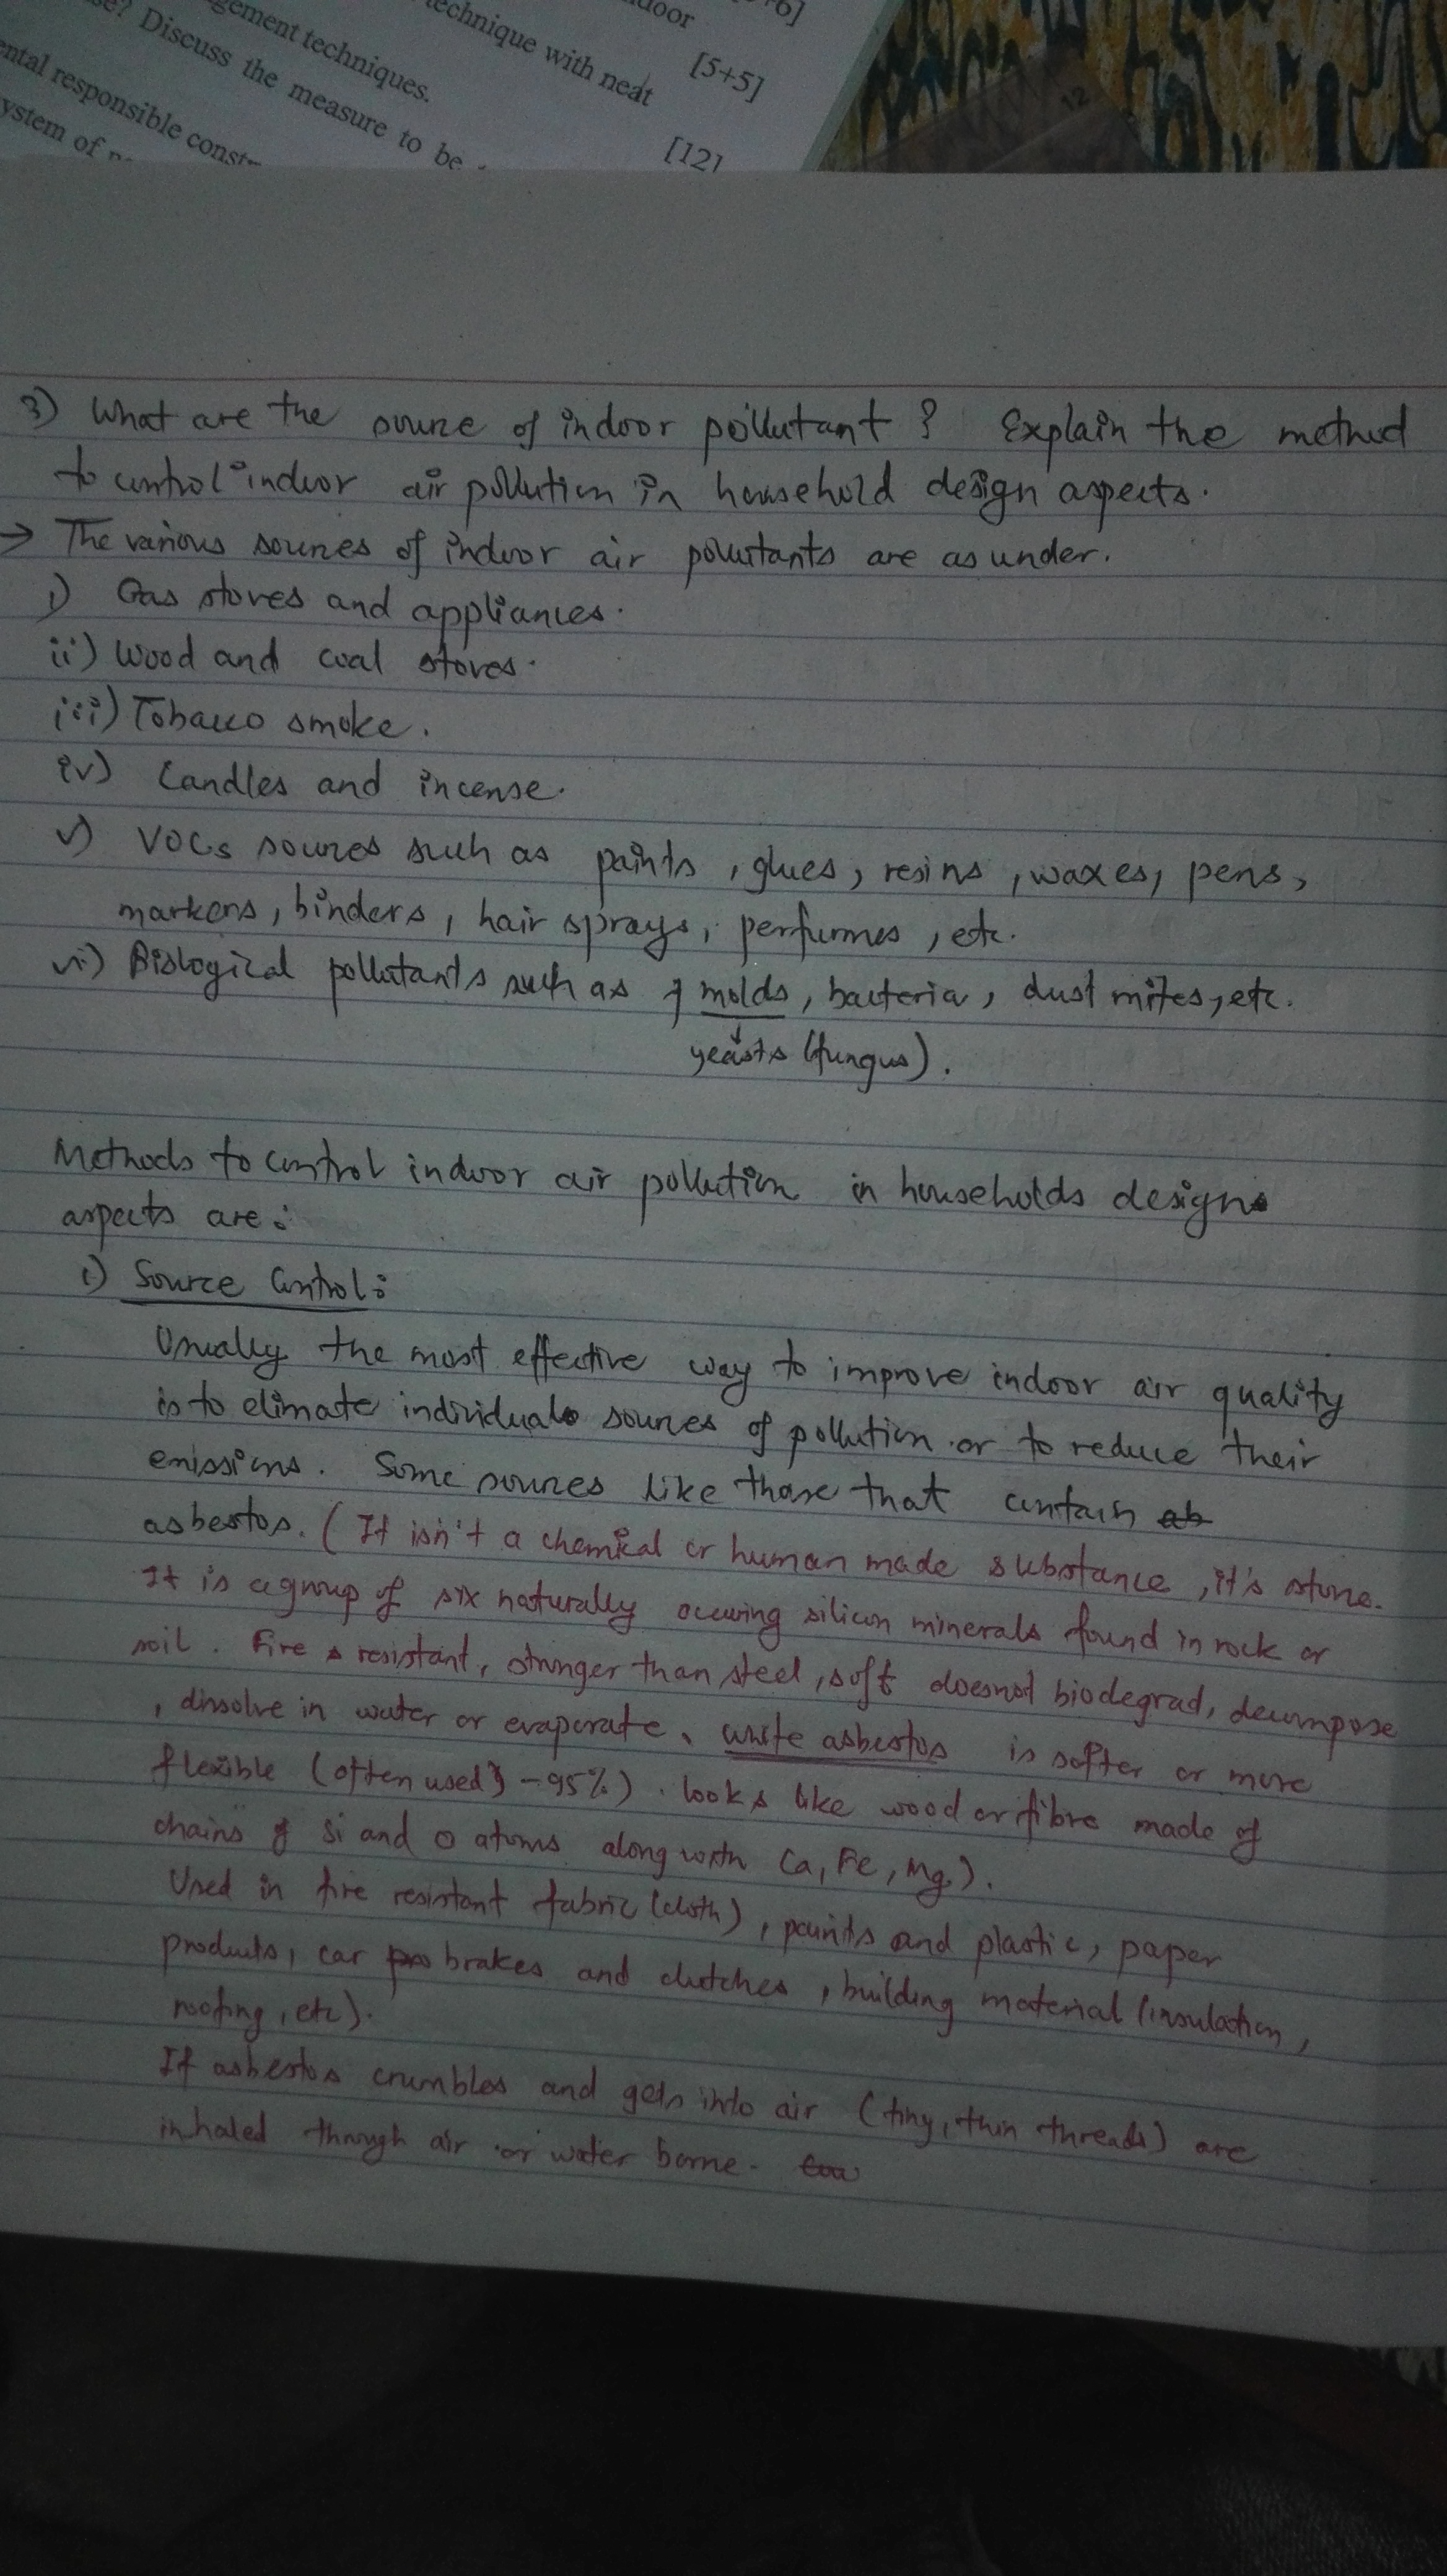 door
+6]
technique with neat
[5+5]
gement techniques.
se? Discuss the measure to be
[12]
ental responsible const
ystem of
3) What are the source of indoor pollutant ? Explain the method
to control indoor air pollution in household design aspects.
→ The various sources of indoor air pollutants are as under.
i) Gas stoves and appliances.
ii) Wood and coal stoves.
iii) Tobacco smoke.
iv) Candles and incense.
v) VOCs sources such as paints, glues, resins, waxes, pens,
markers, binders, hair sprays, perfumes, etc.
vi) Biological pollutants such as molds, bacteria, dust mites, etc.
yeasts (fungus).
Methods to control indoor air pollution in households designs
aspects are:
i) Source Control:
Usually the most effective way to improve indoor air quality
is to elimate individuals sources of pollution or to reduce their
emissions. Some sources like those that contain ab
asbestos. (It isn't a chemical or human made substance, it's stone.
It is a group of six naturally occuring silicon minerals found in rock or
soil. Fire resistant, stronger than steel, soft doesnot biodegrad, decompose
, dissolve in water or evaporate. white asbestos is softer or more
flexible (often used -95%). looks like wood or fibre made of
chains of Si and O atoms along with Ca, Fe, Mg.).
Used in fire resistant fabric (cloth), paints and plastic, paper
products, car brakes and clutches, building material (insulation,
roofing, etc).
If asbestos crumbles and gets into air (tiny, thin threads) are
inhaled through air or water borne.